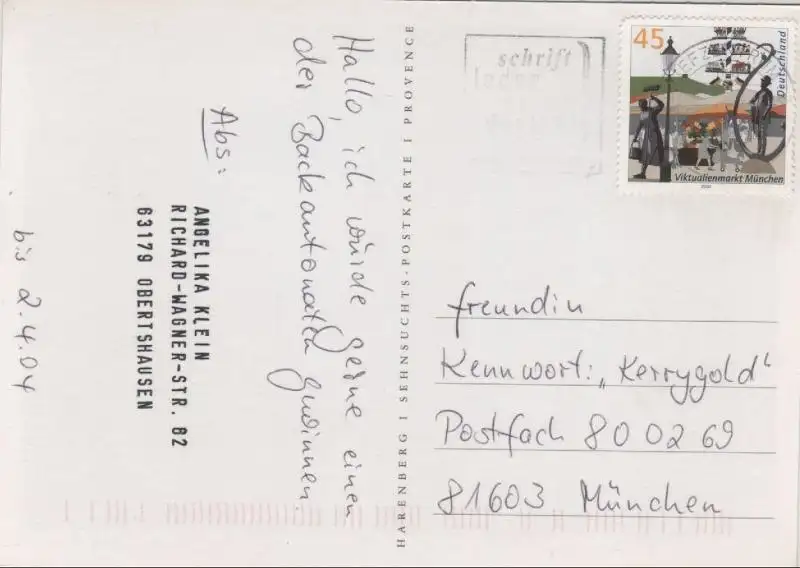 Hallo, ich würde gerne einen
der Backautomaten gewinnen
Abs:
ANGELIKA KLEIN
RICHARD-WAGNER-STR. 82
63179 OBERTSHAUSEN
bis 2.4.04
HARENBERG I SEHNSUCHTS-POSTKARTE I PROVENCE
schrift
45
Deutschland
Viktualienmarkt München
freundin
Kennwort: „Kerrygold“
Postfach 80 02 69
81603 München